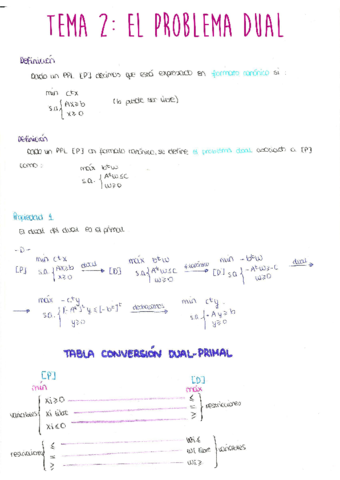 TEMA 2: EL PROBLEMA DUAL
Definición
Dado un PPL [P] decimos que está expresado en formato canónico si:
min cᵗx
s.a. { Ax≥b
x≥0
(b puede ser
Definición
Dado un PPL [P] en formato canónico, se define el problema dual asociado a [P]
como:
máx bᵗw
s.a. { Aᵗw≤c
w≥0
Propiedad 1
El dual del dual es el primal
-D-
[P] min cᵗx s.a. { Ax≥b x≥0 dual → [D] máx bᵗw s.a. { Aᵗw≤c w≥0 f. canónico → [D] min -bᵗw s.a. { -Aᵗw≥-c w≥0 dual →
→ máx -cᵗy s.a. { [-Aᵗ]ᵗy≤[-bᵗ]ᵗ y≥0 → min cᵗy s.a. { -Ay≥b y≥0
TABLA CONVERSIÓN DUAL-PRIMAL
[P] [D]
min máx
variables { xi≥0 ≤ } restricciones
xi libre =
xi≤0 ≥
restricciones { ≤ wi≤ } variables
= wi libre
≥ wi≥